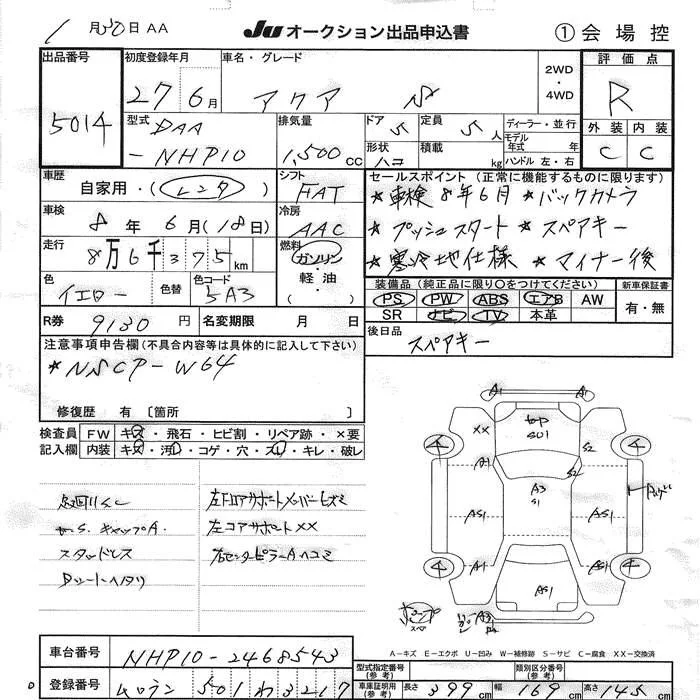 1月30日 AA JU オークション出品申込書 ①会場控
出品番号 5014
初度登録年月 27年6月
車名・グレード アクア S
2WD・4WD
評価点 R
外装 C 内装 C
型式 DAA-NHP10
排気量 1,500cc
ドア 5 定員 5人
形状 ハコ 積載 kg
ディーラー・並行
モデル年式 年式
ハンドル 左・右
車歴 自家用・(レンタ)
シフト FAT
セールスポイント (正常に機能するものに限ります)
★車検8年6月 ★バックカメラ
★プッシュスタート ★スペアキー
★寒冷地仕様 ★マイナー後
車検 8年6月(18日)
冷房 AAC
走行 8万6千375km
燃料 ガソリン・軽油・( )
色 イエロー 色替 色コード 5A3
装備品(純正品に限り○をつけてください) 新車保証書
PS PW ABS エアB AW 有・無
SR ナビ TV 本革
R券 9130円 名変期限 月 日
後日品 スペアキー
注意事項申告欄(不具合内容等は具体的に記入して下さい)
★NSCP-W64
修復歴 有〔箇所
検査員記入欄 FW キズ・飛石・ヒビ割・リペア跡・×要
内装 キズ・汚レ・コゲ・穴・スレ・キレ・破レ
スタッドレス
左コアサポートXX
A1 A1
XX S2
A1 A3 S1 S2
AS1 AS1 AS1
A1 AS1 A1
A-キズ E-エクボ U-凹み W-補修跡 S-サビ C-腐食 XX-交換済
車台番号 NHP10-2468543
型式指定番号(参考) 類別区分番号(参考)
登録番号 ムロラン 501 わ 3217
車庫証明用(参考) 長さ 399cm 幅 169cm 高さ 145cm